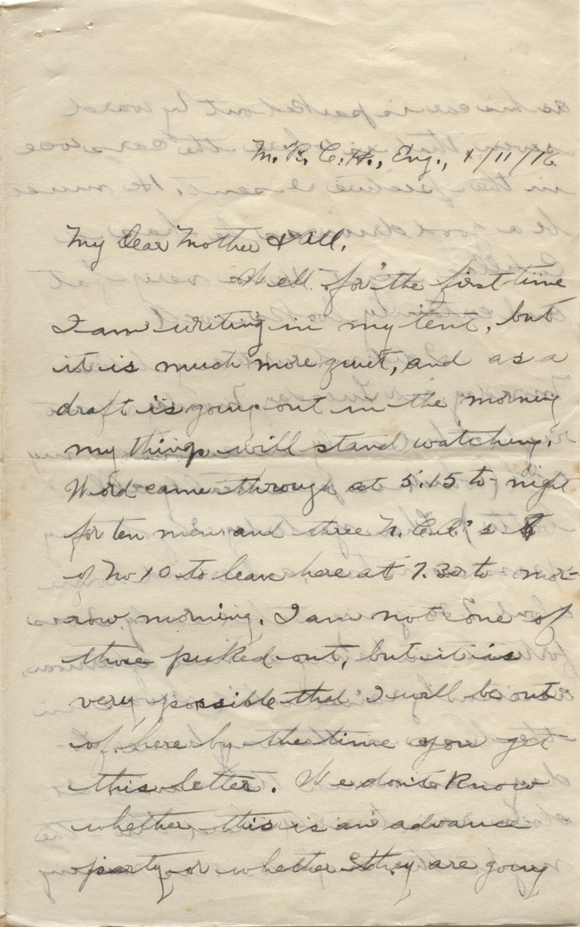 M. B. C. H., Eng., 4/11/16.
My Dear Mother & All,
Well for the first time
I am writing in my tent, but
it is much more quiet, and as a
draft is going out in the morning
my things will stand watching.
Word came through at 5.15 to-night
for ten men and three N. C. O.'s
of No 10 to leave here at 7.30 to mor-
row morning. I am not one of
those picked out, but it is
very possible that I will be out
of here by the time you get
this letter. We don't know
whether this is an advance
party or whether they are going